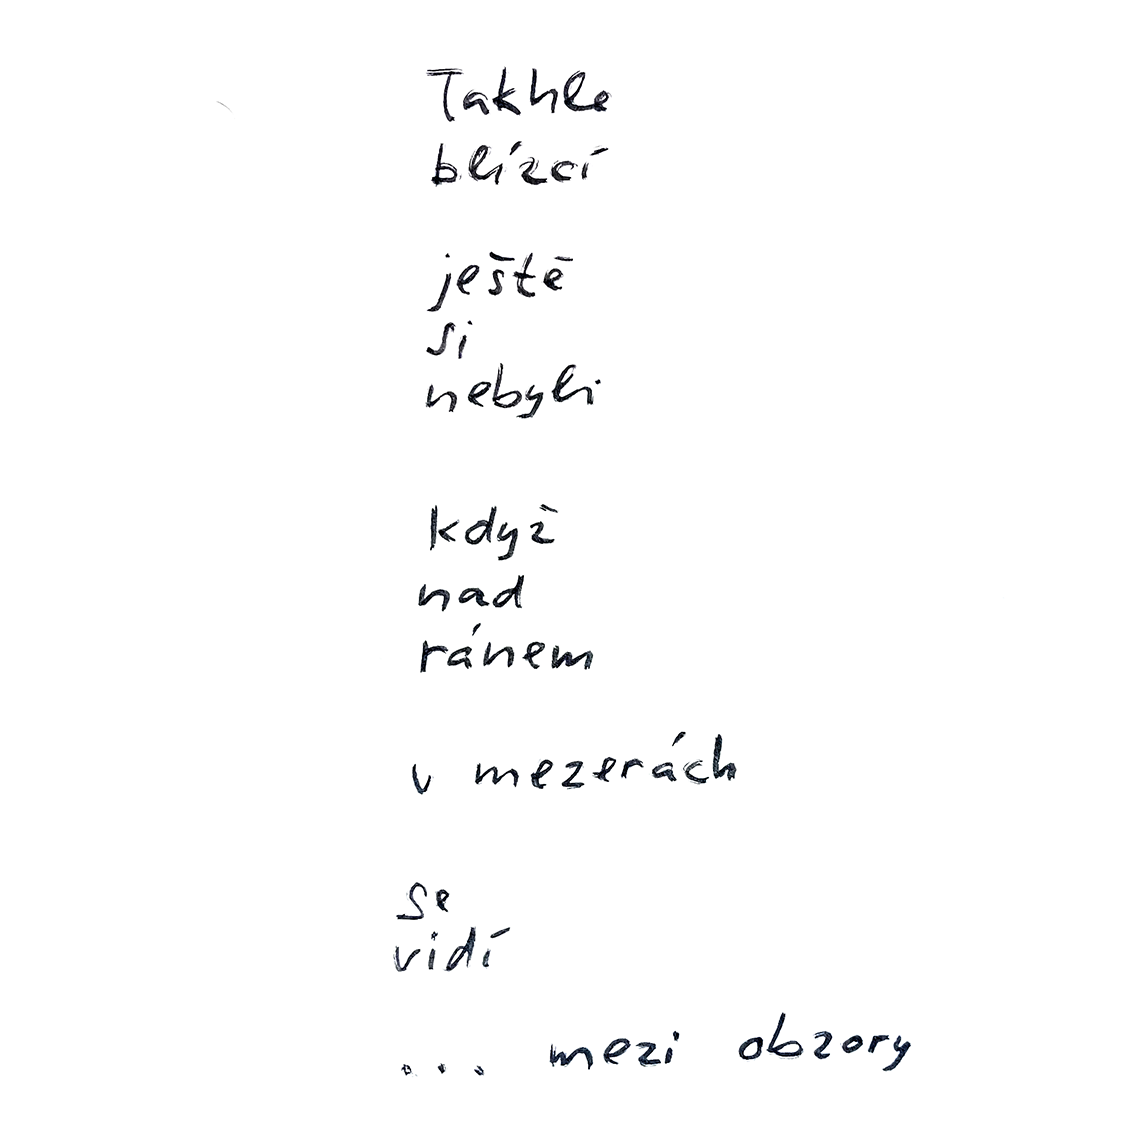 Takhle
blízcí
ještě
si
nebyli
když
nad
ránem
v mezerách
se
vidí
... mezi obzory